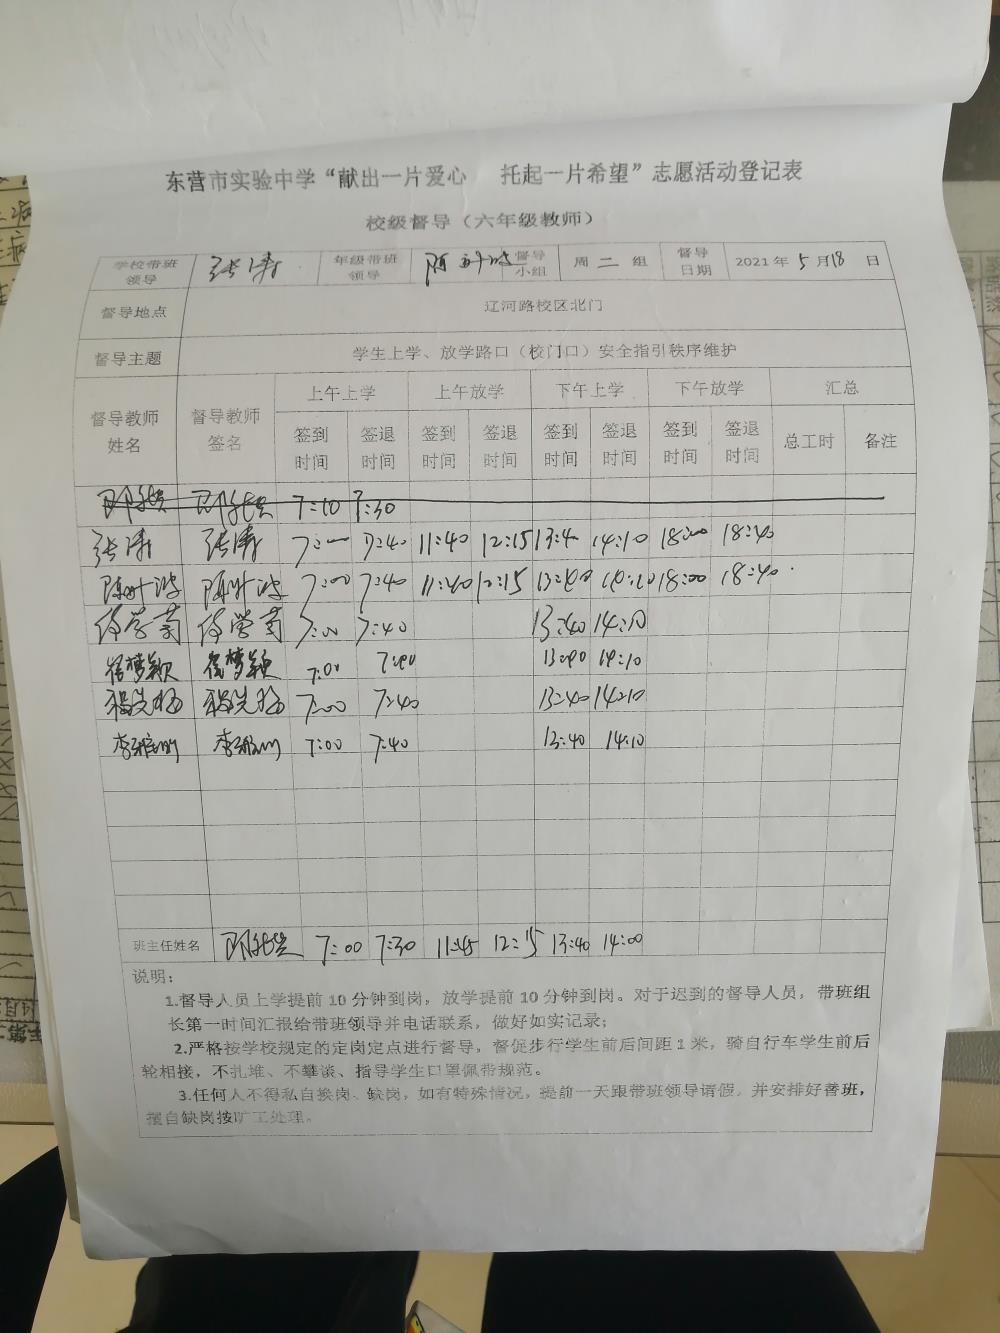 东营市实验中学“献出一片爱心 托起一片希望”志愿活动登记表
校级督导（六年级教师）
学校带班领导 张涛 年级带班领导 督导小组 周二组 督导日期 2021年5月18日
督导地点 辽河路校区北门
督导主题 学生上学、放学路口（校门口）安全指引秩序维护
督导教师姓名 督导教师签名 上午上学 上午放学 下午上学 下午放学 汇总
签到时间 签退时间 签到时间 签退时间 签到时间 签退时间 签到时间 签退时间 总工时 备注
7:10 7:30
张涛 张涛 7:00 7:40 11:40 12:15 13:40 14:10 18:00 18:40
7:00 7:40 11:40 12:15 13:40 14:10 18:00 18:40
7:00 7:40 13:40 14:10
7:00 7:40 13:40 14:10
7:00 7:40 13:40 14:10
7:00 7:40 13:40 14:10
班主任姓名 7:00 7:30 11:45 12:15 13:40 14:00
说明：
1.督导人员上学提前10分钟到岗，放学提前10分钟到岗。对于迟到的督导人员，带班组
长第一时间汇报给带班领导并电话联系，做好如实记录；
2.严格按学校规定的定岗定点进行督导，督促步行学生前后间距1米，骑自行车学生前后
轮相接，不扎堆、不攀谈、指导学生口罩佩带规范。
3.任何人不得私自换岗、缺岗，如有特殊情况，提前一天跟带班领导请假，并安排好替班，
擅自缺岗按旷工处理。